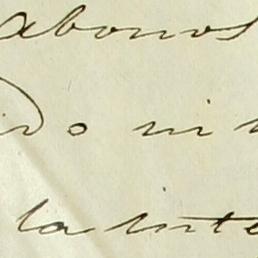 abonos
do ni
la inte